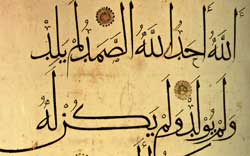 اللَّهُ أَحَدٌ اللَّهُ الصَّمَدُ لَمْ يَلِدْ
وَلَمْ يُولَدْ وَلَمْ يَكُنْ لَهُ